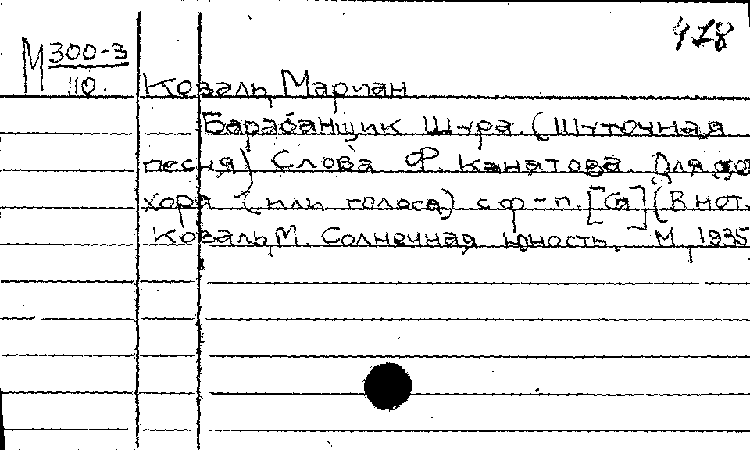 418
М 300-3
110.
Коваль, Мариан
Барабанщик Шура. (Шуточная
песня) Слова Ф. Канатова. Для
хора (или голоса) с ф-п. [G] (В нот.
Коваль, М. Солнечная юность. М., 1935